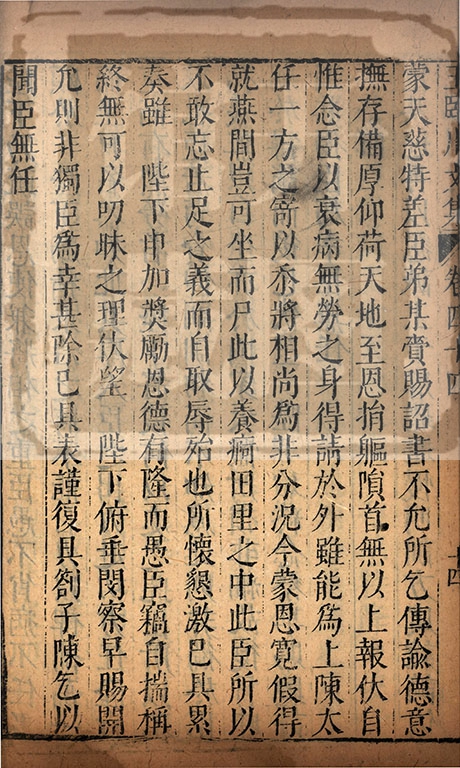 王臨川文集 卷四十四 十四
蒙天慈特差臣弟某賫賜詔書不允所乞傳諭德意
撫存備厚仰荷天地至恩捐軀隕首無以上報伏自
惟念臣以衰病無勞之身得請於外雖能爲上陳太
任一方之寄以忝將相尚爲非分況今蒙恩寬假得
就燕間豈可坐而尸此以養痾田里之中此臣所以
不敢忘止足之義而自取辱殆也所懷懇激已具累
奏雖 陛下申加獎勵恩德有隆而愚臣竊自揣稱
終無可以叨昧之理伏望 陛下俯垂閔察早賜開
允則非獨臣爲幸甚除已具表謹復具劄子陳乞以
聞臣無任